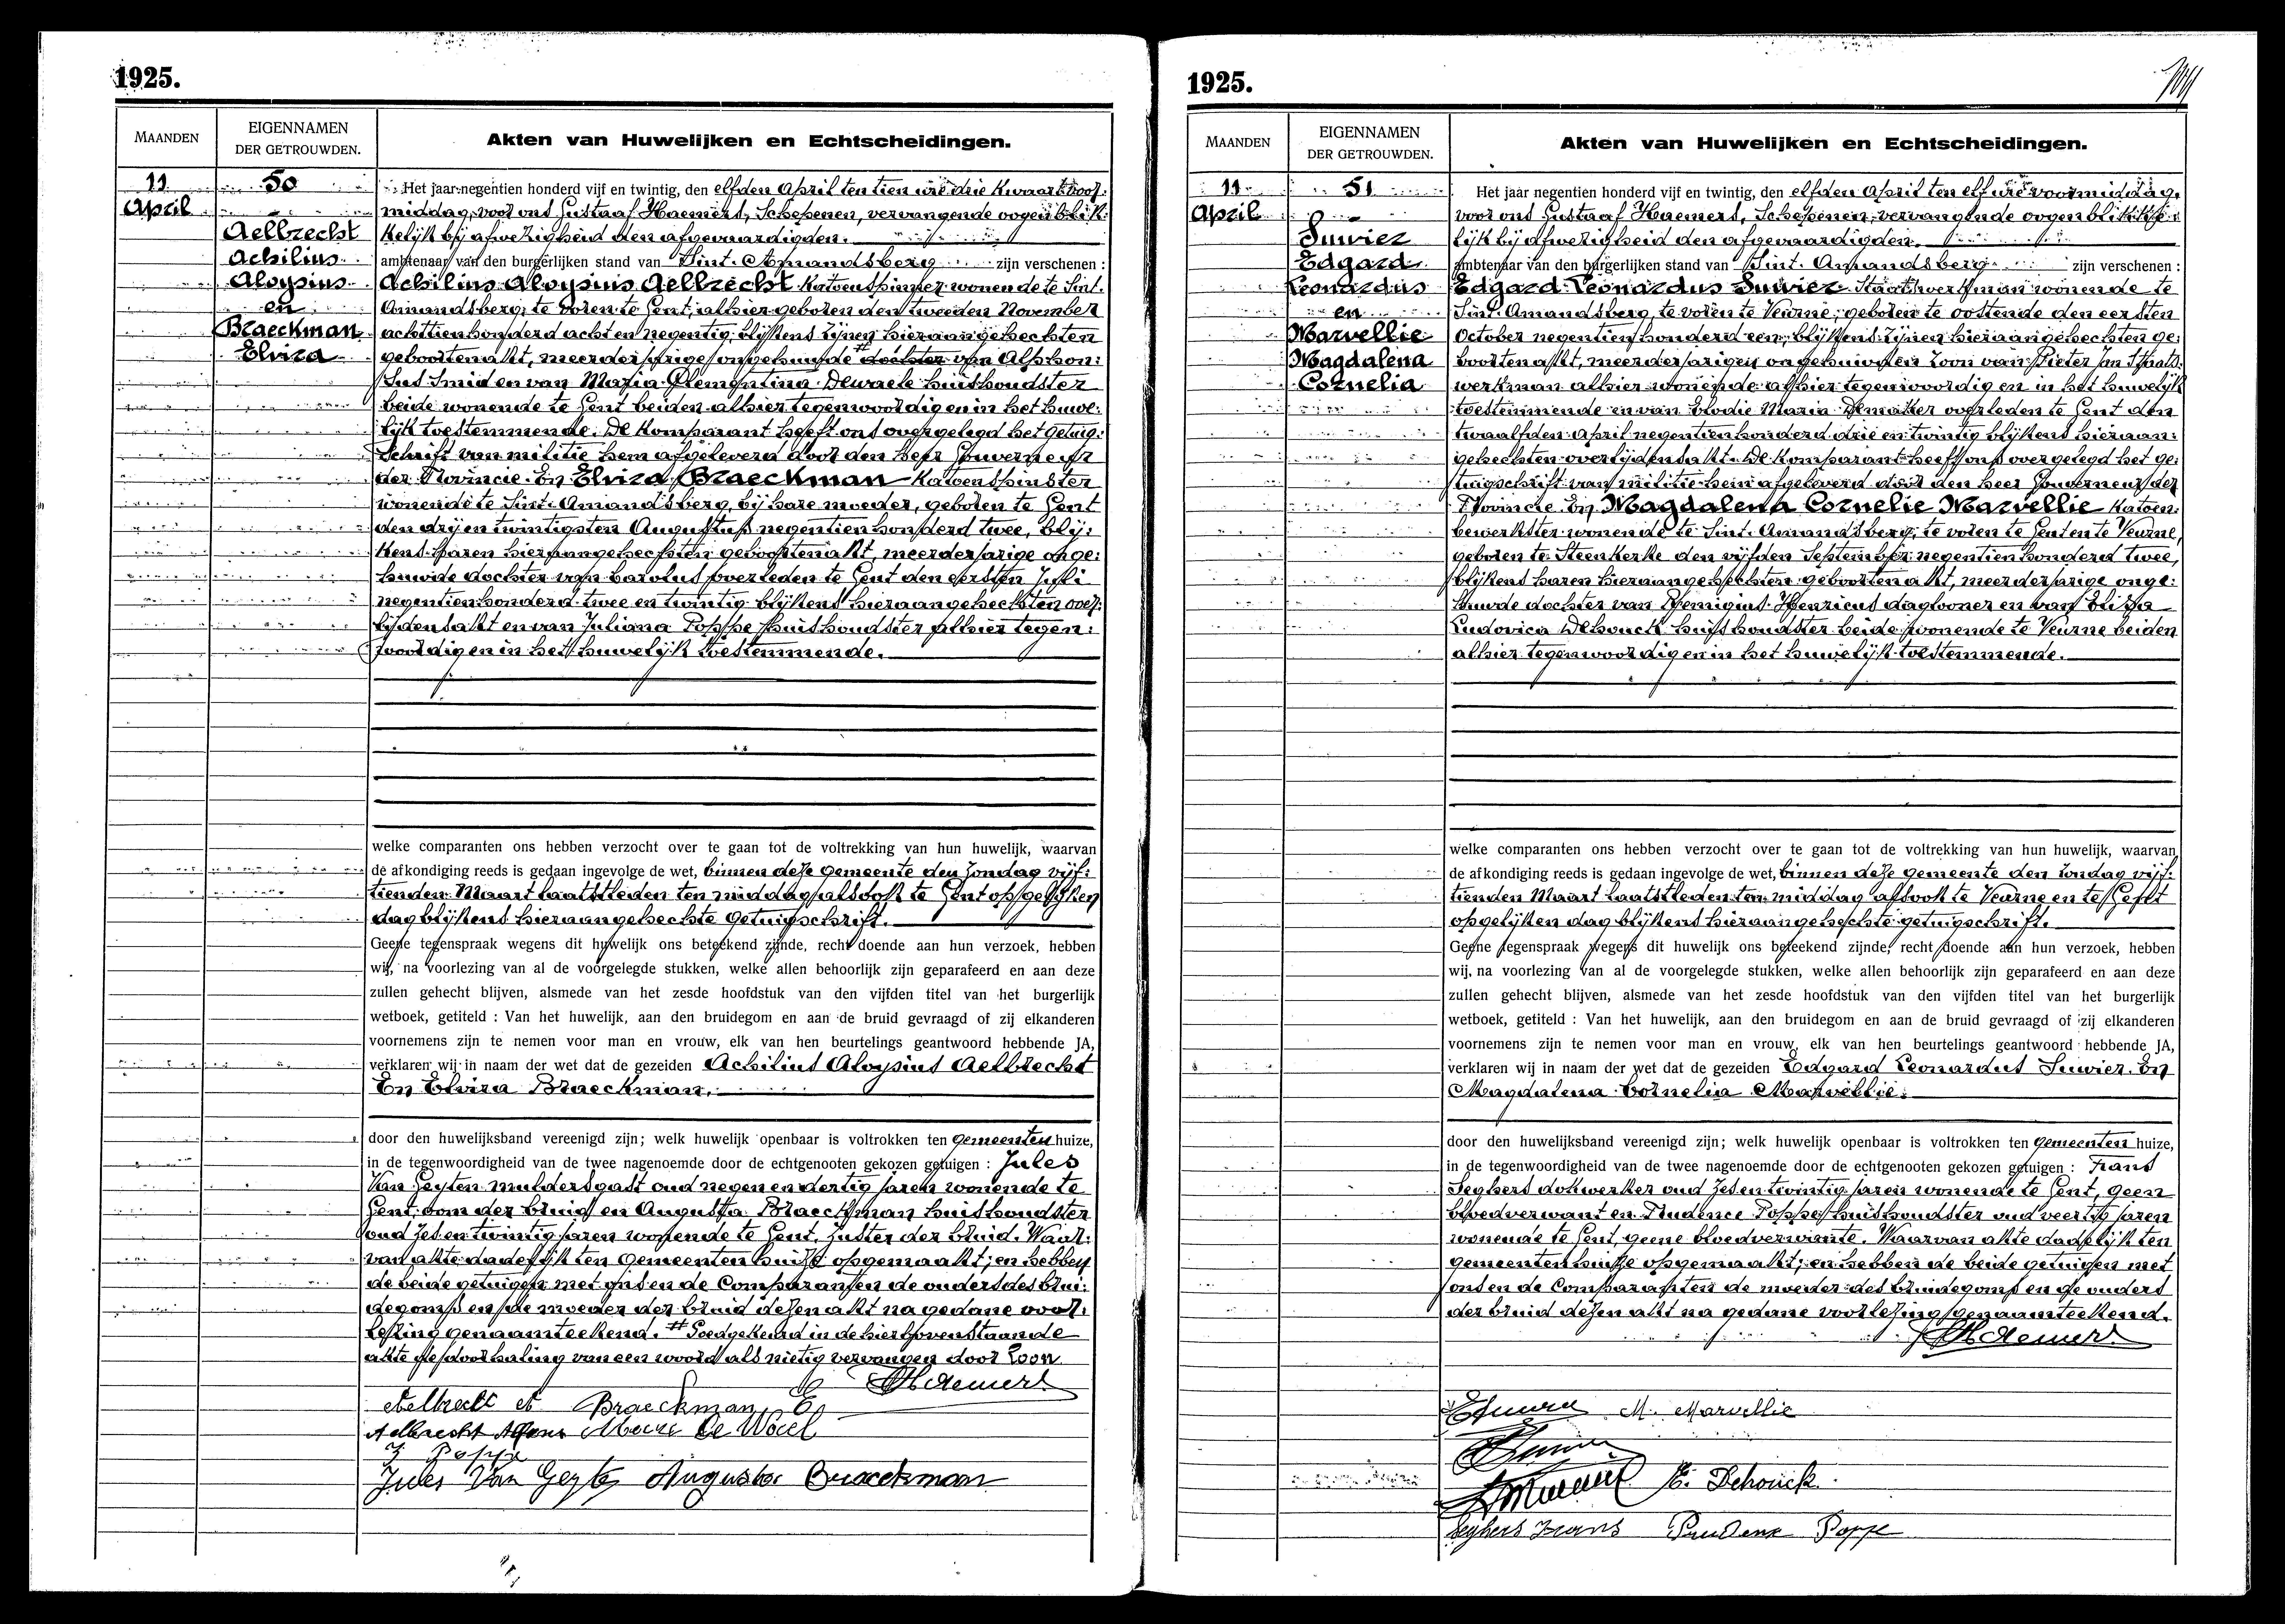 1925.
MAANDEN
EIGENNAMEN DER GETROUWDEN.
Akten van Huwelijken en Echtscheidingen.
11 April
50
Aelbrecht
Achilius
Aloysius
en
Braeckman
Elvira
Het jaar negentien honderd vijf en twintig, den elfden April ten tien ure drie kwaart voor:
middag, voor ons Gustaaf Haemers, Schepenen, vervangende oogenblik:
kelijk bij afwezigheid den afgevaardigden.
ambtenaar van den burgerlijken stand van Sint. Amandsberg zijn verschenen :
Achilius Aloysius Aelbrecht Katoenspinner wonende te Sint.
Amandsberg, te voren te Gent, alhier geboren den tweeden November
achttienhonderd acht en negentig, blijkens zijnen hieraangehechten
geboortenakt, meerderjarige ongehuwde # dochter van Alphon:
sus Smid en van Maria Clementina Dewaele huishoudster
beide wonende te Gent beiden alhier tegenwoordig en in het huwe:
lijk toestemmende. De komparant heeft ons overgelegd het getuig:
schrift van militie hem afgeleverd door den heer Gouverneur
der Provincie. En Elvira Braeckman Katoenspinster
wonende te Sint. Amandsberg, bij hare moeder, geboren te Gent
den drij en twintigsten Augustus negentienhonderd twee, blij:
kens haren hieraangehechten geboortenakt, meerderjarige onge:
huwde dochter van Carolus overleden te Gent den eersten Juli
negentienhonderd twee en twintig blijkens hieraangehechten over:
lijdensakt en van Juliana Poppe huishoudster alhier tegen:
woordig en in het huwelijk toestemmende.
welke comparanten ons hebben verzocht over te gaan tot de voltrekking van hun huwelijk, waarvan
de afkondiging reeds is gedaan ingevolge de wet, binnen deze gemeente den Zondag vijf:
tienden Maart laatstleden ten middag alsook te Gent op gelijken
dag blijkens hieraangehechte getuigschrift.
Geene tegenspraak wegens dit huwelijk ons beteekend zijnde, recht doende aan hun verzoek, hebben
wij, na voorlezing van al de voorgelegde stukken, welke allen behoorlijk zijn geparafeerd en aan deze
zullen gehecht blijven, alsmede van het zesde hoofdstuk van den vijfden titel van het burgerlijk
wetboek, getiteld : Van het huwelijk, aan den bruidegom en aan de bruid gevraagd of zij elkanderen
voornemens zijn te nemen voor man en vrouw, elk van hen beurtelings geantwoord hebbende JA,
verklaren wij in naam der wet dat de gezeiden Achilius Aloysius Aelbrecht
En Elvira Braeckman.
door den huwelijksband vereenigd zijn; welk huwelijk openbaar is voltrokken ten gemeenten huize,
in de tegenwoordigheid van de twee nagenoemde door de echtgenooten gekozen getuigen : Jules
Van Geyten muldersgast oud negen en dertig jaren wonende te
Gent, oom der bruid en Augusta Braeckman huishoudster
oud zes en twintig jaren wonende te Gent, zuster der bruid. Waar:
van akte dadelijk ten gemeenten huize opgemaakt; en hebben
de beide getuigen met ons en de Comparanten de ouders des brui:
degoms en de moeder der bruid dezen akt na gedane voor:
lezing genaamteekend. # Goedgekeurd in de hierbovenstaande
akte de doorhaling van een woord als nietig vervangen door Zoon.
GHaemers
Aelbrecht A Braeckman E
Aelbrecht Alfons Marie De Wael
J Poppe
Jules Van Geyte Augusta Braeckman
1925.
MAANDEN
EIGENNAMEN DER GETROUWDEN.
Akten van Huwelijken en Echtscheidingen.
11 April
51
Suwier
Edgard
Leonardus
en
Marvellie
Magdalena
Cornelia
Het jaar negentien honderd vijf en twintig, den elfden April ten elf ure voormiddag,
voor ons Gustaaf Haemers, Schepenen, vervangende oogenblikke:
lijk bij afwezigheid den afgevaardigden.
ambtenaar van den burgerlijken stand van Sint. Amandsberg zijn verschenen :
Edgard Leonardus Suwier Staatswerkman wonende te
Sint. Amandsberg, te voren te Veurne, geboren te Oostende den eersten
October negentienhonderd een, blijkens zijnen hieraangehechten ge:
boortenakt, meerderjarigen ongehuwden zoon van Pieter Jan Staats:
werkman alhier wonende alhier tegenwoordig en in het huwelijk
toestemmende en van Elodie Maria Demaker overleden te Gent den
twaalfden April negentienhonderd drie en twintig blijkens hieraan:
gehechten overlijdensakt. De komparant heeft ons overgelegd het ge:
tuigschrift van militie hem afgeleverd door den heer Gouverneur der
Provincie. En Magdalena Cornelie Marvellie Katoen:
bewerkster wonende te Sint. Amandsberg, te voren te Gent en te Veurne,
geboren te Steenkerke den vijfden September negentienhonderd twee,
blijkens haren hieraangehechten geboortenakt, meerderjarige onge:
huwde dochter van Remigius Henricus dagloner en van Eliza
Ludovica Dehouck huishoudster beide wonende te Veurne beiden
alhier tegenwoordig en in het huwelijk toestemmende.
welke comparanten ons hebben verzocht over te gaan tot de voltrekking van hun huwelijk, waarvan
de afkondiging reeds is gedaan ingevolge de wet, binnen deze gemeente den Zondag vijf:
tienden Maart laatstleden ten middag alsook te Veurne en te Gent
op gelijken dag blijkens hieraangehechte getuigschrift.
Geene tegenspraak wegens dit huwelijk ons beteekend zijnde, recht doende aan hun verzoek, hebben
wij, na voorlezing van al de voorgelegde stukken, welke allen behoorlijk zijn geparafeerd en aan deze
zullen gehecht blijven, alsmede van het zesde hoofdstuk van den vijfden titel van het burgerlijk
wetboek, getiteld : Van het huwelijk, aan den bruidegom en aan de bruid gevraagd of zij elkanderen
voornemens zijn te nemen voor man en vrouw, elk van hen beurtelings geantwoord hebbende JA,
verklaren wij in naam der wet dat de gezeiden Edgard Leonardus Suwier. En
Magdalena Cornelia Marvellie.
door den huwelijksband vereenigd zijn; welk huwelijk openbaar is voltrokken ten gemeenten huize,
in de tegenwoordigheid van de twee nagenoemde door de echtgenooten gekozen getuigen : Frans
Seghers dokwerker oud zes en twintig jaren wonende te Gent, geen
bloedverwant en Prudence Poppe huishoudster oud veertig jaren
wonende te Gent, geene bloedverwante. Waarvan akte dadelijk ten
gemeenten huize opgemaakt; en hebben de beide getuigen met
ons en de Comparanten de moeder des bruidegoms en de ouders
der bruid dezen akt na gedane voorlezing genaamteekend.
GHaemers
M. Marvellie
E. Dehouck
Seghers Frans Prudence Poppe